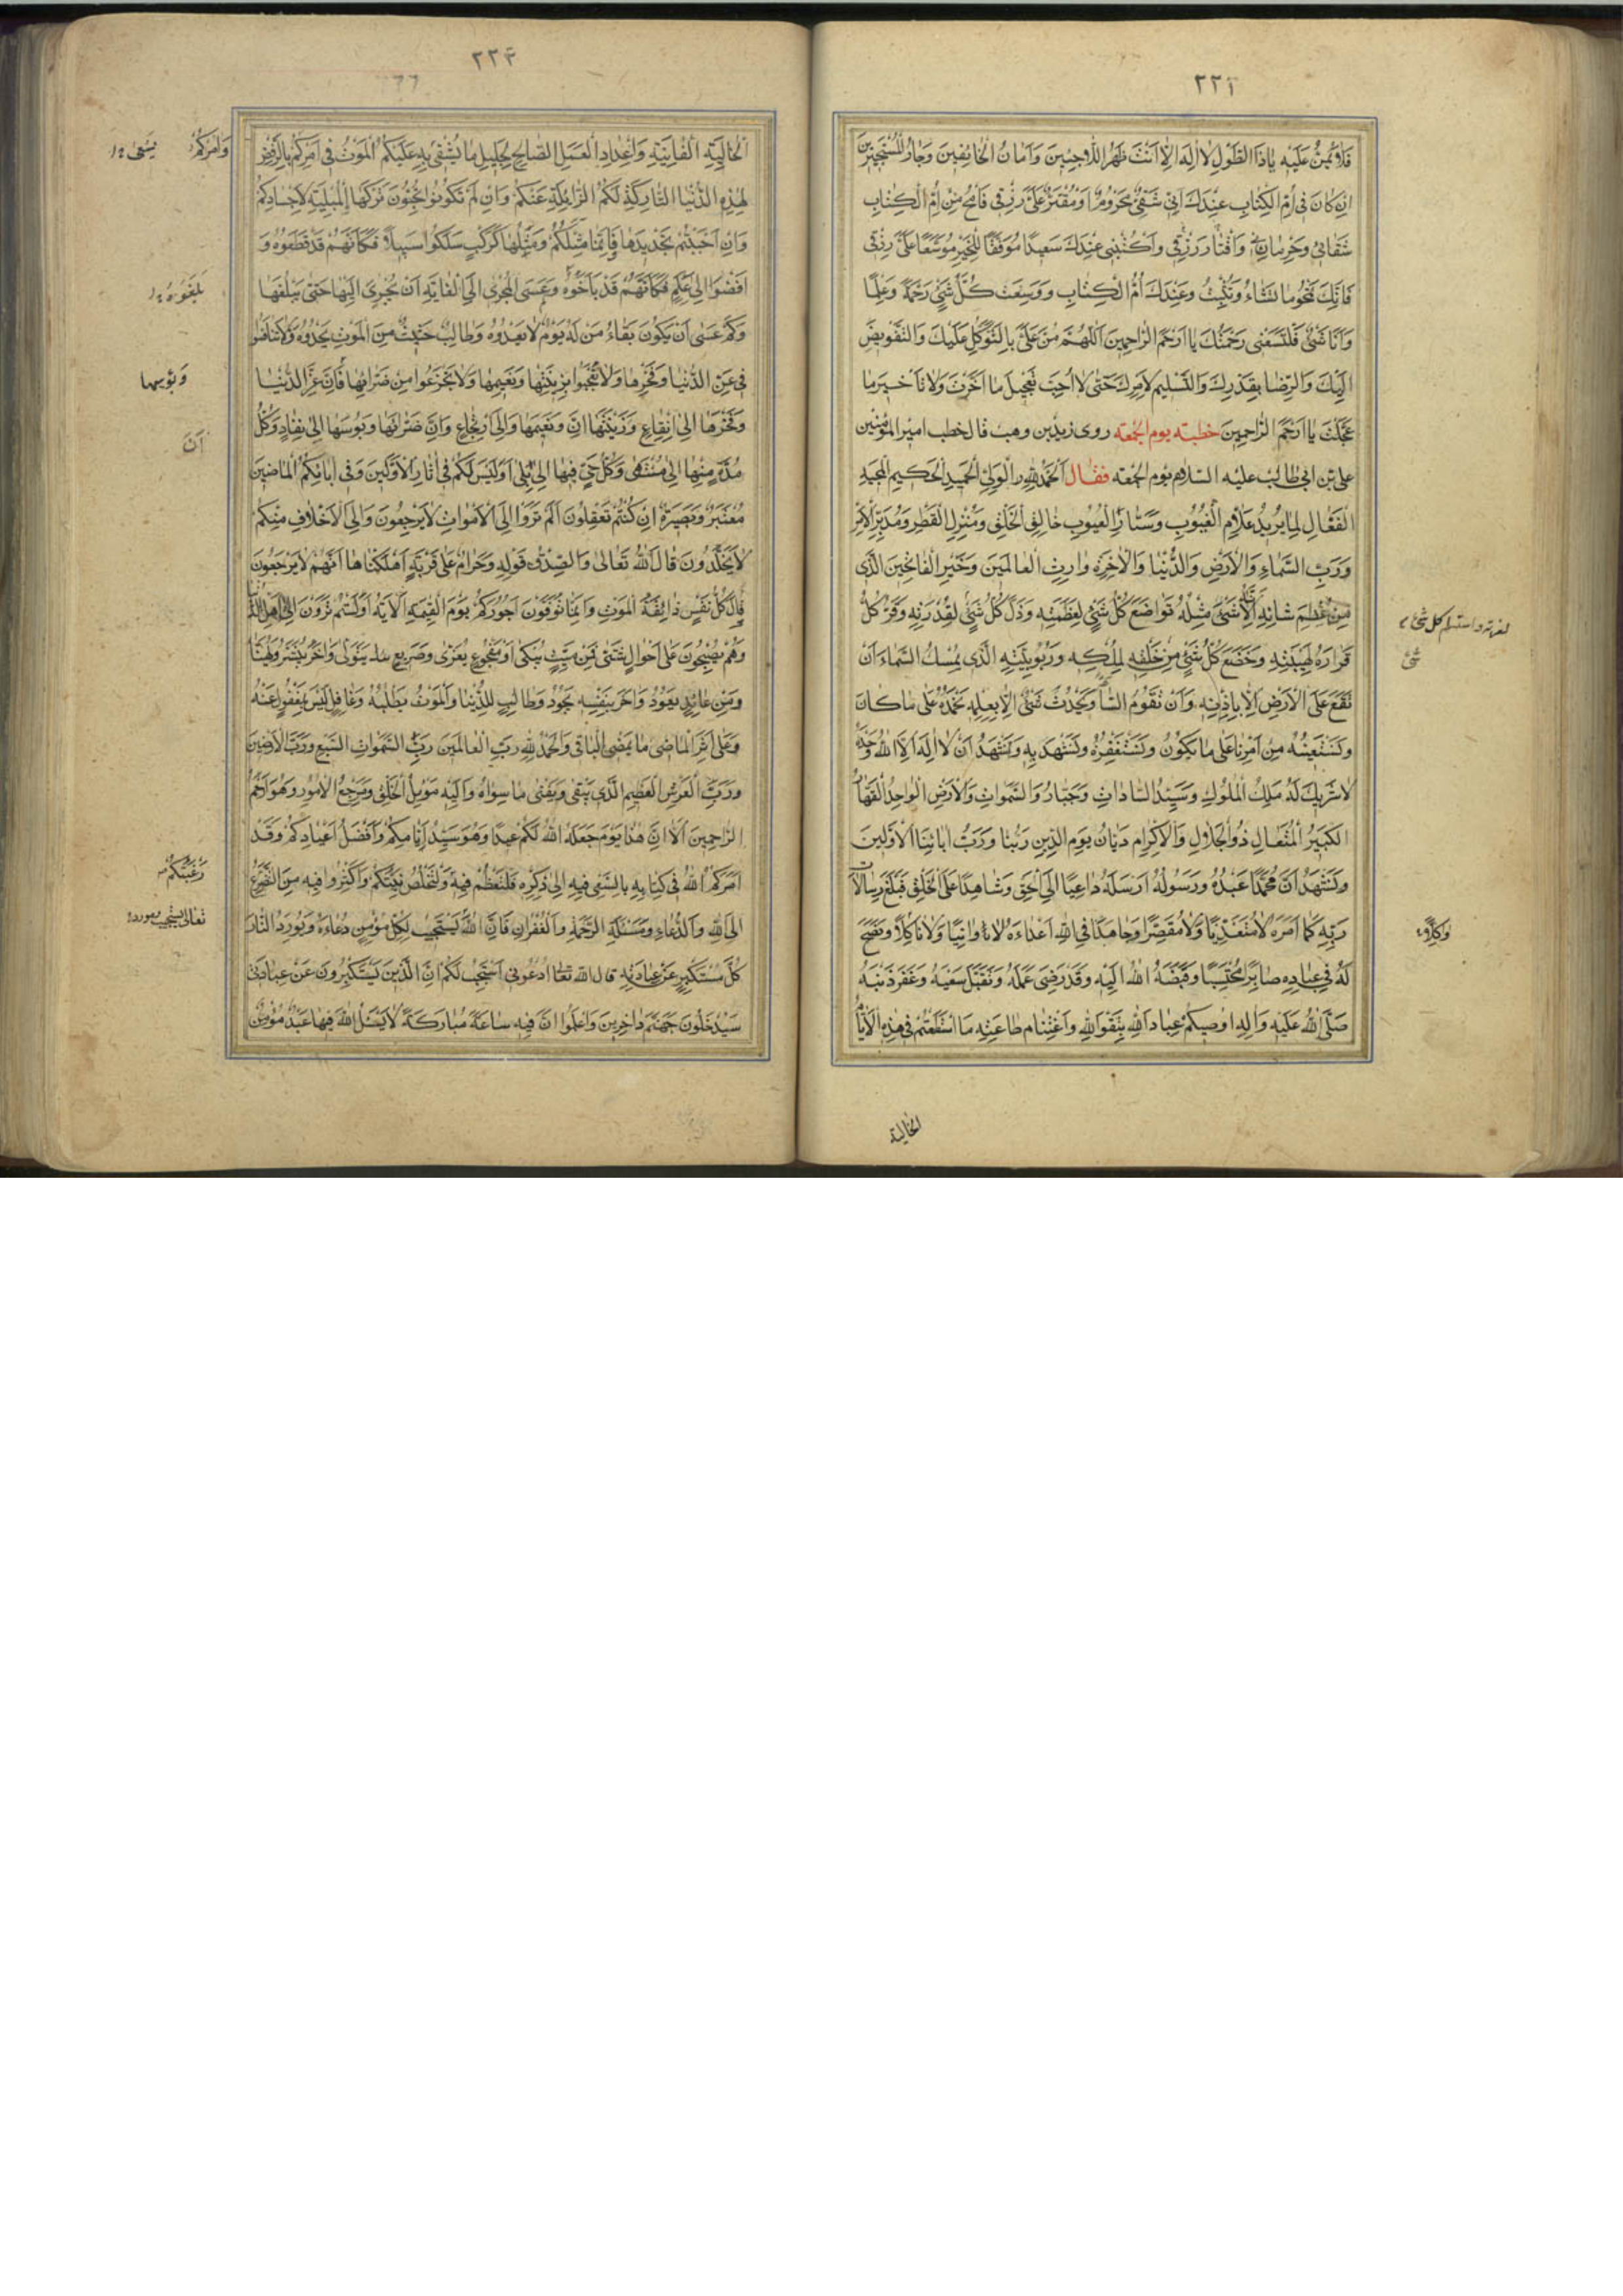 ٢٢٢
فَلَا تَمُنُّ عَلَيْهِ يَا ذَا الطَّوْلِ لَا اِلٰهَ اِلَّا اَنْتَ ظَهْرُ اللَّاجِئِينَ وَاَمَانُ الْخَائِفِينَ وَجَارُ الْمُسْتَجِيرِينَ
اِنْ كَانَ فِي اُمِّ الْكِتَابِ عِنْدَكَ اَنِّي شَقِيٌّ مَحْرُومٌ اَوْ مُقْتَرٌ عَلَيَّ رِزْقِي فَامْحُ مِنْ اُمِّ الْكِتَابِ
شَقَائِي وَحِرْمَانِي وَاِقْتَارَ رِزْقِي وَاكْتُبْنِي عِنْدَكَ سَعِيدًا مُوَفَّقًا لِلْخَيْرِ مُوَسَّعًا عَلَيَّ رِزْقِي
فَاِنَّكَ تَمْحُو مَا تَشَاءُ وَتُثْبِتُ وَعِنْدَكَ اُمُّ الْكِتَابِ وَوَسِعْتَ كُلَّ شَيْءٍ رَحْمَةً وَعِلْمًا
وَاَنَا شَيْءٌ فَلْتَسَعْنِي رَحْمَتُكَ يَا اَرْحَمَ الرَّاحِمِينَ اَللّٰهُمَّ مُنَّ عَلَيَّ بِالتَّوَكُّلِ عَلَيْكَ وَالتَّفْوِيضِ
اِلَيْكَ وَالرِّضَا بِقَدَرِكَ وَالتَّسْلِيمِ لِاَمْرِكَ حَتّٰى لَا اُحِبَّ تَعْجِيلَ مَا اَخَّرْتَ وَلَا تَاْخِيرَ مَا
عَجَّلْتَ يَا اَرْحَمَ الرَّاحِمِينَ خطبته يوم الجمعه روى زيد بن وهب قال خطب امير المؤمنين
على بن ابى طالب عليه السلام يوم الجمعه فقال اَلْحَمْدُ لِلّٰهِ الْوَلِيِّ الْحَمِيدِ الْحَكِيمِ الْمَجِيدِ
الْفَعَّالِ لِمَا يُرِيدُ عَلَّامِ الْغُيُوبِ وَسَتَّارِ الْعُيُوبِ خَالِقِ الْخَلْقِ وَمُنْزِلِ الْقَطْرِ وَمُدَبِّرِ الْاَمْرِ
وَرَبِّ السَّمَاءِ وَالْاَرْضِ وَالدُّنْيَا وَالْاٰخِرَةِ وَارِثِ الْعَالَمِينَ وَخَيْرِ الْفَاتِحِينَ الَّذِى
مِنْ عِظَمِ شَانِهِ اَنَّهُ لَا شَيْءَ مِثْلُهُ تَوَاضَعَ كُلُّ شَيْءٍ لِعَظَمَتِهِ وَذَلَّ كُلُّ شَيْءٍ لِقُدْرَتِهِ وَقَرَّ كُلُّ
قَرَارَهُ لِهَيْبَتِهِ وَخَضَعَ كُلُّ شَيْءٍ مِنْ خَلْقِهِ لِمُلْكِهِ وَرُبُوبِيَّتِهِ الَّذِى يُمْسِكُ السَّمَاءَ اَنْ
تَقَعَ عَلَى الْاَرْضِ اِلَّا بِاِذْنِهِ وَاَنْ تَقُومَ السَّاعَةُ وَيَحْدُثَ شَيْءٌ اِلَّا بِعِلْمِهِ نَحْمَدُهُ عَلٰى مَا كَانَ
وَنَسْتَعِينُهُ مِنْ اَمْرِنَا عَلٰى مَا يَكُونُ وَنَسْتَغْفِرُهُ وَنَسْتَهْدِيهِ وَنَشْهَدُ اَنْ لَا اِلٰهَ اِلَّا اللّٰهُ وَحْدَهُ
لَا شَرِيكَ لَهُ مَلِكُ الْمُلُوكِ وَسَيِّدُ السَّادَاتِ وَجَبَّارُ السَّمٰوَاتِ وَالْاَرْضِ الْوَاحِدُ الْقَهَّارُ
الْكَبِيرُ الْمُتَعَالِ ذُو الْجَلَالِ وَالْاِكْرَامِ دَيَّانُ يَوْمِ الدِّينِ رَبُّنَا وَرَبُّ اٰبَائِنَا الْاَوَّلِينَ
وَنَشْهَدُ اَنَّ مُحَمَّدًا عَبْدُهُ وَرَسُولُهُ اَرْسَلَهُ دَاعِيًا اِلَى الْحَقِّ وَشَاهِدًا عَلَى الْخَلْقِ فَبَلَّغَ رِسَالَاتِ
رَبِّهِ كَمَا اَمَرَهُ لَا مُتَعَدِّيًا وَلَا مُقَصِّرًا وَجَاهَدَ فِي اللّٰهِ اَعْدَاءَهُ لَا وَانِيًا وَلَا نَاكِلًا وَنَصَحَ
لَهُ فِي عِبَادِهِ صَابِرًا مُحْتَسِبًا وَقَبَضَهُ اللّٰهُ اِلَيْهِ وَقَدْ رَضِيَ عَمَلَهُ وَتَقَبَّلَ سَعْيَهُ وَغَفَرَ ذَنْبَهُ
صَلَّى اللّٰهُ عَلَيْهِ وَاٰلِهِ اُوصِيكُمْ عِبَادَ اللّٰهِ بِتَقْوَى اللّٰهِ وَاغْتِنَامِ طَاعَتِهِ مَا اسْتَطَعْتُمْ فِي هٰذِهِ الْاَيَّامِ
كل شئ
شئ
الخالية
٢٢٣
الْخَالِيَةِ الْفَانِيَةِ وَاِعْدَادِ الْعَمَلِ الصَّالِحِ لِجَلِيلِ مَا يُشْفِي بِهِ عَلَيْكُمُ الْمَوْتُ فِي اَمْرِكُمْ بِالرَّفْضِ
لِهٰذِهِ الدُّنْيَا التَّارِكَةِ لَكُمُ الزَّائِلَةِ عَنْكُمْ وَاِنْ لَمْ تَكُونُوا تُحِبُّونَ تَرْكَهَا الْمُبْلِيَةِ لِاَجْسَادِكُمْ
وَاِنْ اَحْبَبْتُمْ تَجْدِيدَهَا فَاِنَّمَا مَثَلُكُمْ وَمَثَلُهَا كَرَكْبٍ سَلَكُوا سَبِيلًا فَكَاَنَّهُمْ قَدْ قَطَعُوهُ وَ
اَفْضَوْا اِلٰى عَلَمٍ فَكَاَنَّهُمْ قَدْ بَلَغُوهُ وَعَسَى الْمُجْرِى اِلَى الْغَايَةِ اَنْ يُجْرِىَ اِلَيْهَا حَتّٰى يَبْلُغَهَا
وَكَمْ عَسٰى اَنْ يَكُونَ بَقَاءُ مَنْ لَهُ يَوْمٌ لَا يَعْدُوهُ وَطَالِبٌ حَثِيثٌ مِنَ الْمَوْتِ يَحْدُوهُ وَلَا تَنَافَسُوا
فِي عِزِّ الدُّنْيَا وَفَخْرِهَا وَلَا تَعْجَبُوا بِزِينَتِهَا وَنَعِيمِهَا وَلَا تَجْزَعُوا مِنْ ضَرَّائِهَا فَاِنَّ عِزَّ الدُّنْيَا
وَفَخْرَهَا اِلٰى انْقِطَاعٍ وَزِينَتَهَا وَنَعِيمَهَا اِلَى ارْتِجَاعٍ وَاِنَّ ضَرَّائَهَا وَبُؤْسَهَا اِلٰى نَفَادٍ وَكُلُّ
مُدَّةٍ مِنْهَا اِلٰى مُنْتَهًى وَكُلُّ حَيٍّ فِيهَا اِلٰى بِلًى اَوَلَيْسَ لَكُمْ فِي اٰثَارِ الْاَوَّلِينَ وَفِي اٰبَائِكُمُ الْمَاضِينَ
مُعْتَبَرٌ وَبَصِيرَةٌ اِنْ كُنْتُمْ تَعْقِلُونَ اَلَمْ تَرَوْا اِلَى الْاَمْوَاتِ لَا يَرْجِعُونَ وَاِلَى الْاَخْلَافِ مِنْكُمْ
لَا يَخْلُدُونَ قَالَ اللّٰهُ تَعَالٰى وَالصِّدْقُ قَوْلُهُ وَحَرَامٌ عَلٰى قَرْيَةٍ اَهْلَكْنَاهَا اَنَّهُمْ لَا يَرْجِعُونَ
قَالَ كُلُّ نَفْسٍ ذَائِقَةُ الْمَوْتِ وَاِنَّمَا تُوَفَّوْنَ اُجُورَكُمْ يَوْمَ الْقِيٰمَةِ الْاٰيَةَ اَوَلَسْتُمْ تَرَوْنَ اِلٰى اَهْلِ الدُّنْيَا
وَهُمْ يُصْبِحُونَ عَلٰى اَحْوَالٍ شَتّٰى فَمِنْ مَيِّتٍ يُبْكٰى وَمَفْجُوعٍ يُعَزّٰى وَصَرِيعٍ يَتَلَوّٰى وَاٰخَرَ يُبَشَّرُ وَيُهَنَّاُ
وَمِنْ عَائِدٍ يَعُودُ وَاٰخَرَ بِنَفْسِهِ يَجُودُ وَطَالِبٍ لِلدُّنْيَا وَالْمَوْتُ يَطْلُبُهُ وَغَافِلٍ لَيْسَ بِمَغْفُولٍ عَنْهُ
وَعَلٰى اَثَرِ الْمَاضِى مَا يَمْضِى الْبَاقِى وَالْحَمْدُ لِلّٰهِ رَبِّ الْعَالَمِينَ رَبِّ السَّمٰوَاتِ السَّبْعِ وَرَبِّ الْاَرَضِينَ
وَرَبِّ الْعَرْشِ الْعَظِيمِ الَّذِى يَبْقٰى وَيَفْنٰى مَا سِوَاهُ وَاِلَيْهِ مَوْئِلُ الْخَلْقِ وَمَرْجِعُ الْاُمُورِ وَهُوَ اَرْحَمُ
الرَّاحِمِينَ اَلَا اِنَّ هٰذَا يَوْمٌ جَعَلَهُ اللّٰهُ لَكُمْ عِيدًا وَهُوَ سَيِّدُ اَيَّامِكُمْ وَاَفْضَلُ اَعْيَادِكُمْ وَقَدْ
اَمَرَكُمُ اللّٰهُ فِي كِتَابِهِ بِالسَّعْىِ فِيهِ اِلٰى ذِكْرِهِ فَلْتَعْظُمْ فِيهِ وَلْتَخْلُصْ نِيَّتُكُمْ وَاَكْثِرُوا فِيهِ مِنَ التَّضَرُّعِ
اِلَى اللّٰهِ وَالدُّعَاءِ وَمَسْئَلَةِ الرَّحْمَةِ وَالْغُفْرَانِ فَاِنَّ اللّٰهَ يَسْتَجِيبُ لِكُلِّ مُؤْمِنٍ دُعَاءَهُ وَيُورِدُ النَّارَ
كُلَّ مُسْتَكْبِرٍ عَنْ عِبَادَتِهِ قال الله تعا ادْعُونِى اَسْتَجِبْ لَكُمْ اِنَّ الَّذِينَ يَسْتَكْبِرُونَ عَنْ عِبَادَتِى
سَيَدْخُلُونَ جَهَنَّمَ دَاخِرِينَ وَاعْلَمُوا اَنَّ فِيهِ سَاعَةً مُبَارَكَةً لَا يَسْئَلُ اللّٰهَ فِيهَا عَبْدٌ مُؤْمِنٌ
وَاٰمُرُكُمْ
وبؤسها
اَنَّ
رَغْبَتُكُمْ